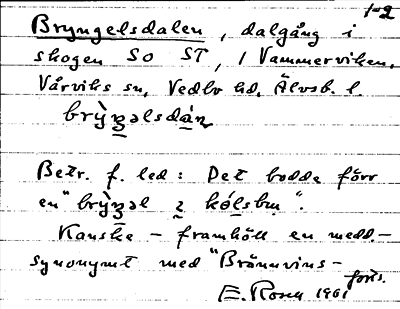 1-2
Bryngelsdalen, dalgång i
skogen SO ST, i Vammerviken,
Vårviks sn, Vedbo hd, Älvsb. l.
Betr. f. led: Det bodde förr
en "
Kanske – framhöll en medd. –
synonymt med "Brännvins-
forts.
E. Rosen 1961